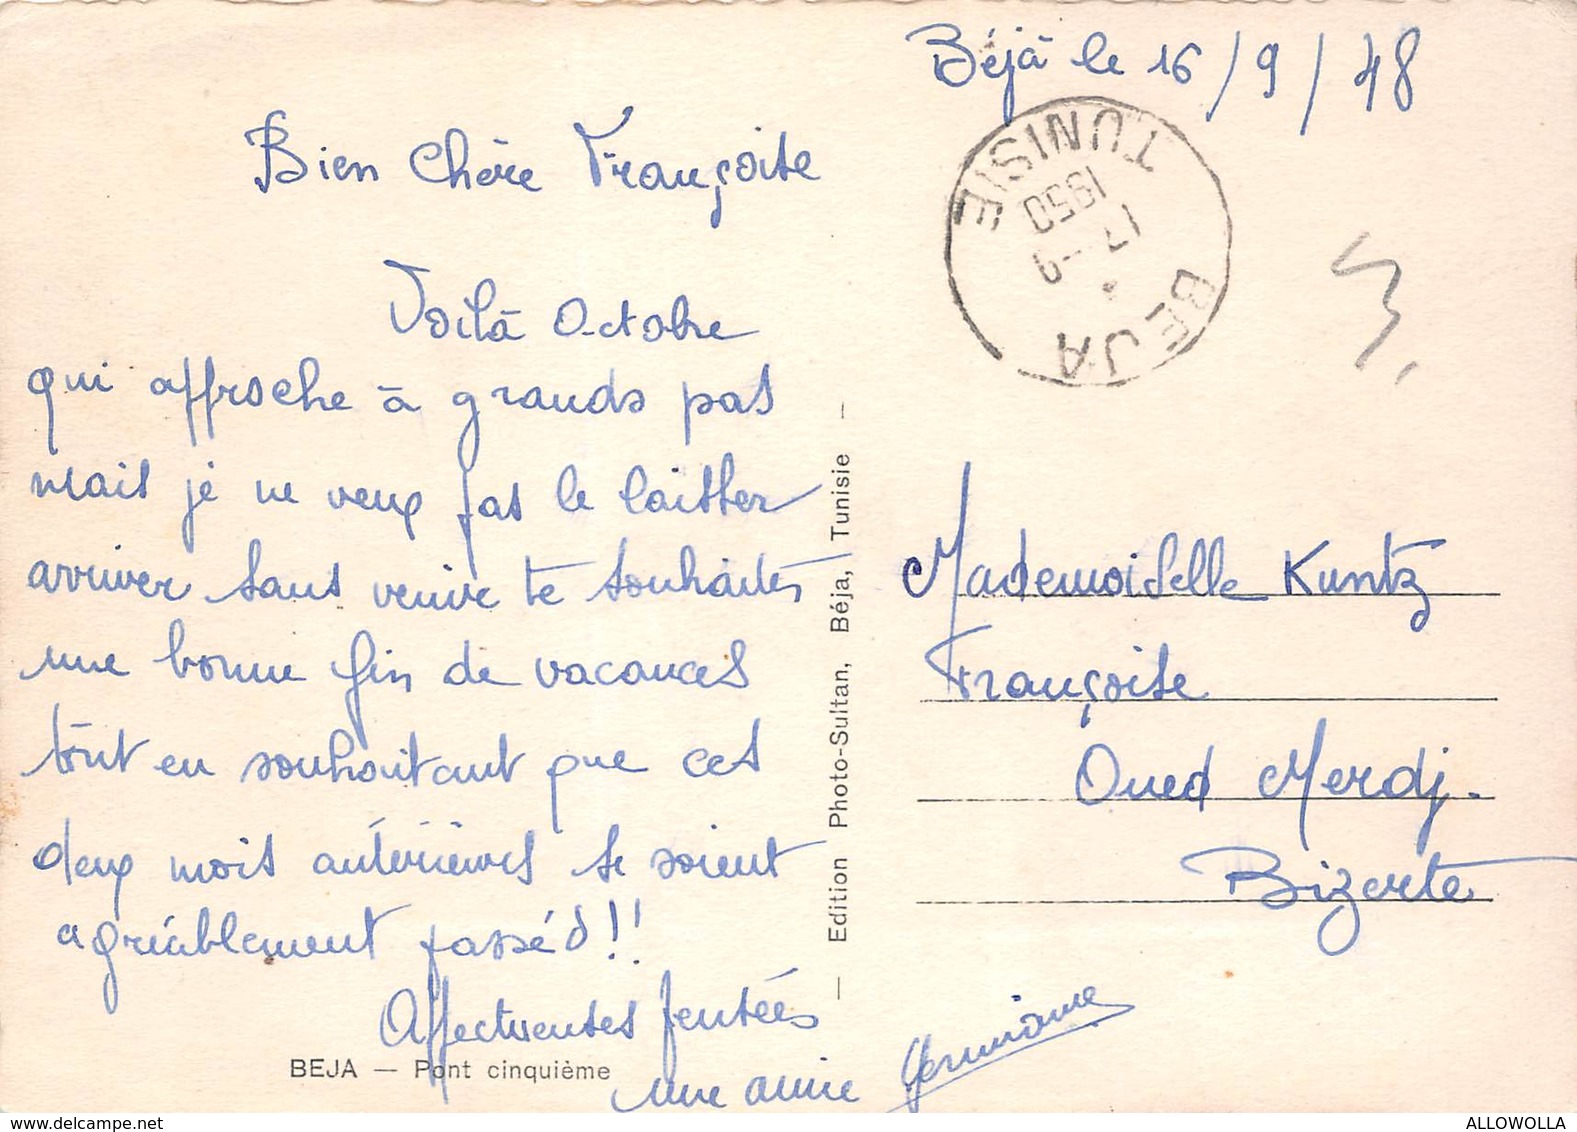 Béjà le 16/9/48
Bien Chère Françoise
Voilà Octobre
qui approche à grands pas
mais je ne veux pas le laisser
arriver sans venir te souhaiter
une bonne fin de vacances
tout en souhaitant que ces
deux mois antérieurs se soient
agréablement passés!!
Affectueuses pensées
une amie Germaine
BEJA — Pont cinquième
— Edition Photo-Sultan, Béja, Tunisie —
TUNISIE
1950
17 - 9
BEJA
Mademoiselle Kuntz
Françoise
Oued Merdj.
Bizerte
ALLOWOLLA